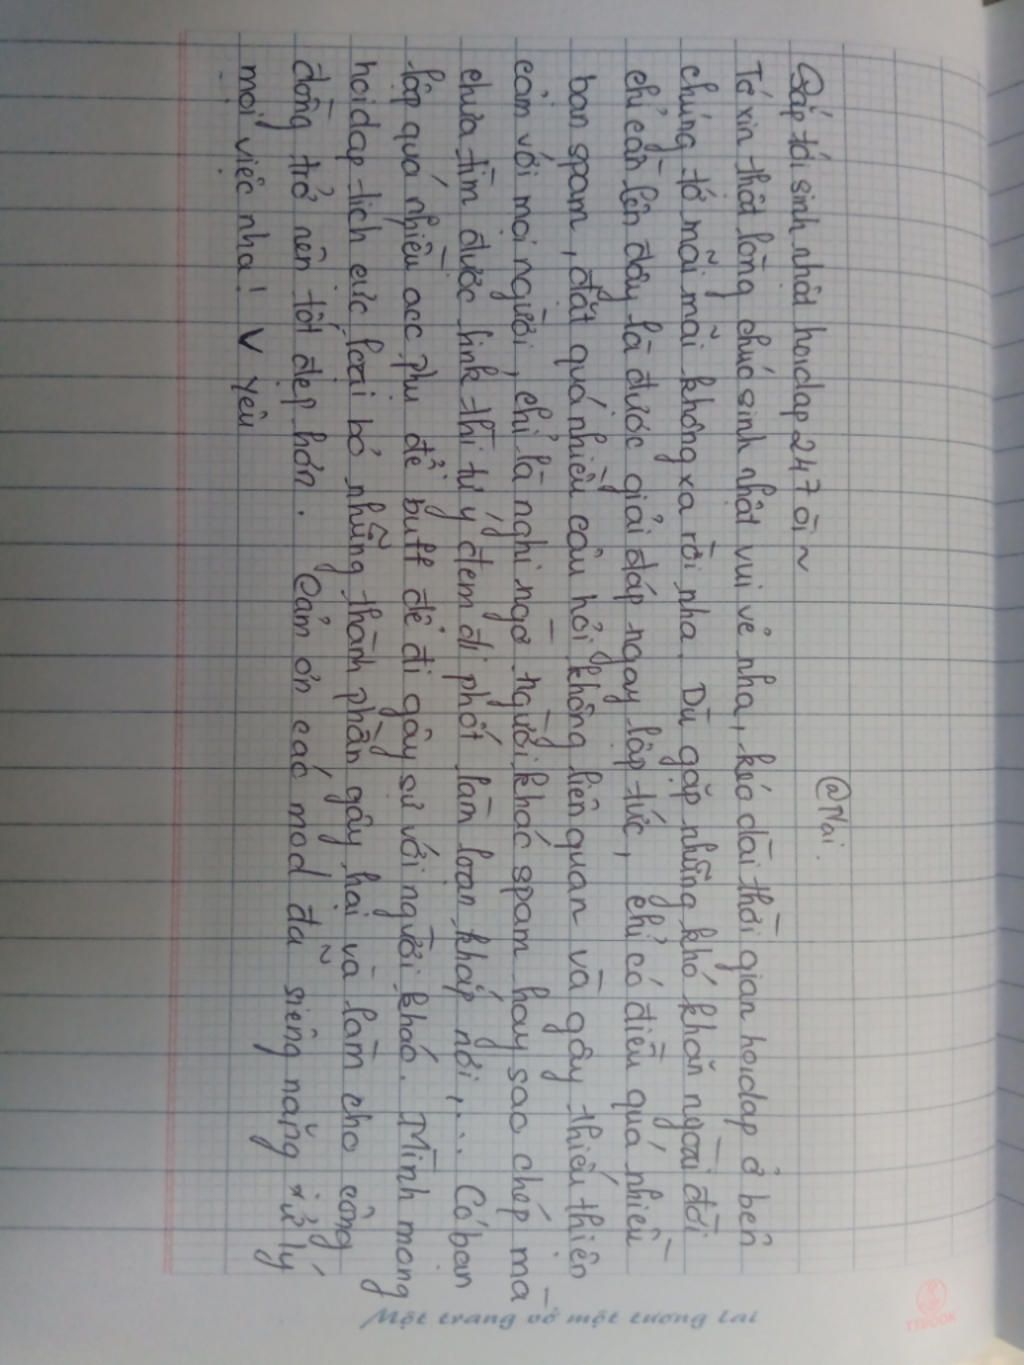 @Nai.
Sắp tới sinh nhật hoidap247 òi ~
Tớ xin thật lòng chúc sinh nhật vui vẻ nha, kéo dài thời gian hoidap ở bên
chúng tớ mãi mãi không xa rời nha. Dù gặp những khó khăn ngoài đời
chỉ cần lên đây là được giải đáp ngay lập tức, chỉ có điều quá nhiều
bạn spam, đặt quá nhiều câu hỏi không liên quan và gây thiếu thiện
cảm với mọi người, chỉ là nghi ngờ người khác spam hay sao chép mà
chưa tìm được link thì tự ý đem đi phốt làm loạn khắp nơi,... Có bạn
lập quá nhiều acc phụ để buff để đi gây sự với người khác. Mình mong
hoidap tích cực loại bỏ những thành phần gây hại và làm cho cộng
đồng trở nên tốt đẹp hơn. Cảm ơn các mod đã siêng năng xử lý
mọi việc nha! V yêu
Một trang vở một tương lai
TTBOOK